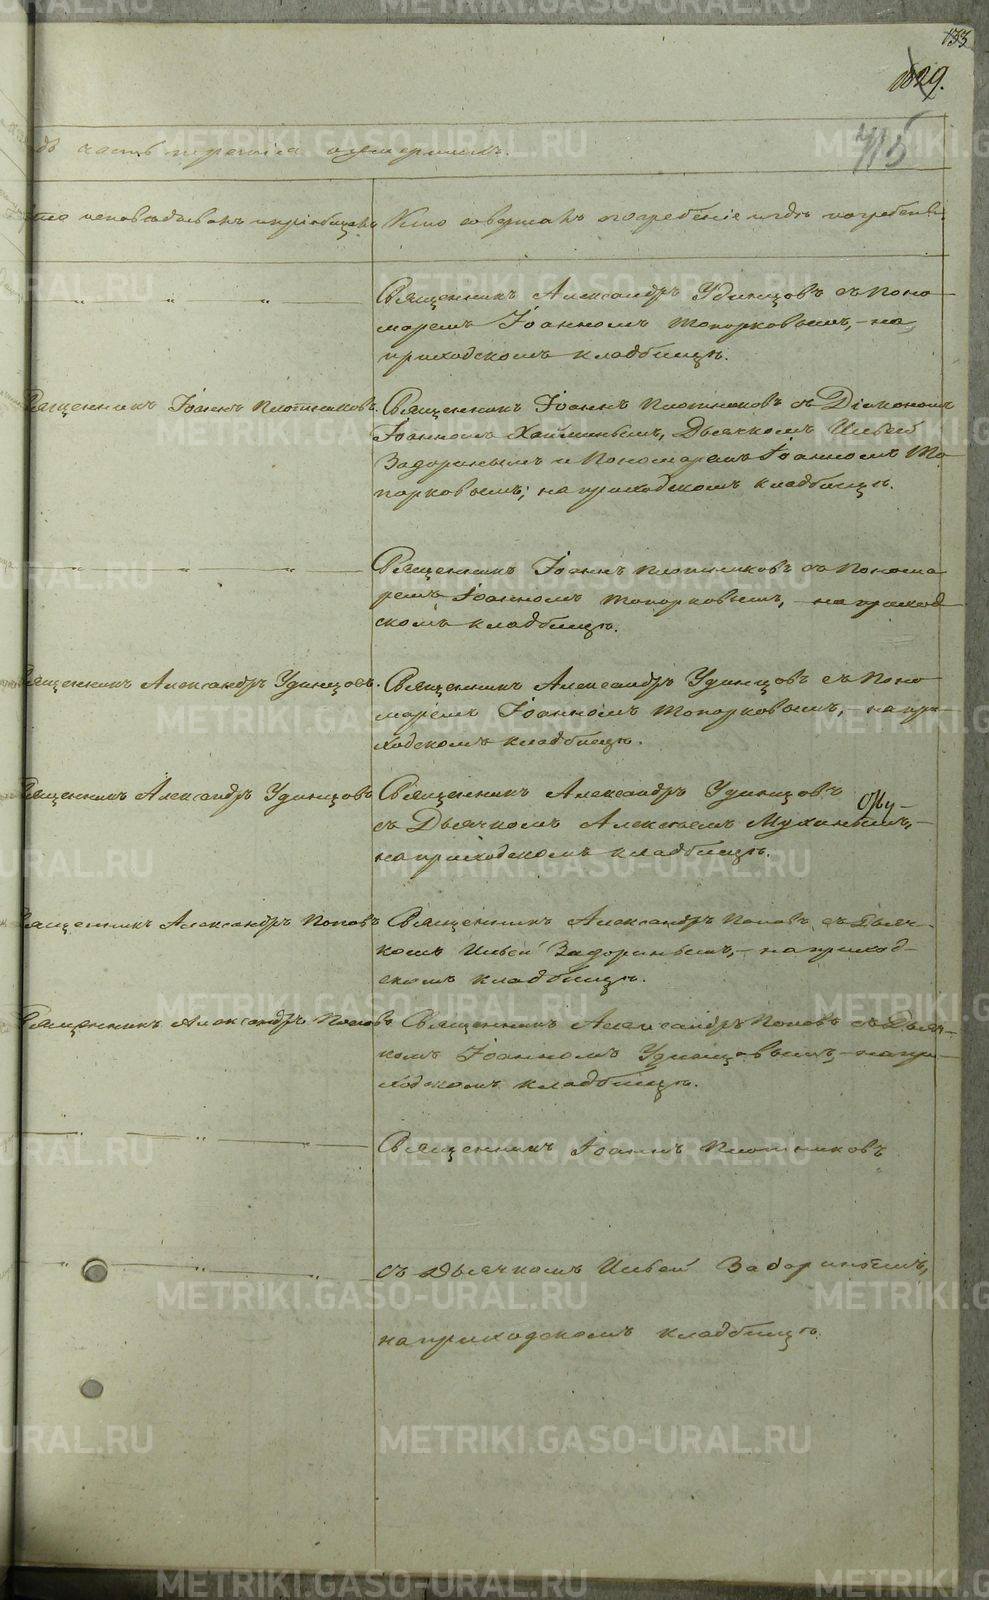 133
1029.
715
часть третья о умершихъ.
Кто исповѣдывалъ и пріобщалъ
Кто совершалъ погребеніе и гдѣ погребены.
Священникъ Александръ Удинцовъ съ Поно-
маремъ Іоанномъ Топорковымъ, на
приходскомъ кладбищѣ.
Священникъ Іоаннъ Плотниковъ.
Священникъ Іоаннъ Плотниковъ съ Діакономъ
Іоанномъ Хайминымъ, Дьячкомъ Ильей
Задоринымъ и Пономаремъ Іоанномъ То-
порковымъ; на приходскомъ кладбищѣ.
Священникъ Іоаннъ Плотниковъ съ Понома
ремъ Іоанномъ Топорковымъ, на приход-
скомъ кладбищѣ.
Священникъ Александръ Удинцовъ.
Священникъ Александръ Удинцовъ съ Поно-
маремъ Іоанномъ Топорковымъ, на при-
ходскомъ кладбищѣ.
Священникъ Александръ Удинцовъ
Священникъ Александръ Удинцовъ
съ Дьячкомъ Алексѣемъ Мухинымъ,
на приходскомъ кладбищѣ.
Священникъ Александръ Поповъ
Священникъ Александръ Поповъ съ Дьяч-
комъ Ильей Задоринымъ, на приход-
скомъ кладбищѣ.
Священникъ Александръ Поповъ
Священникъ Александръ Поповъ съ Дьяч-
комъ Іоанномъ Удинцовымъ, на при-
ходскомъ кладбищѣ.
Священникъ Іоаннъ Плотниковъ
съ Дьячкомъ Ильей Задоринымъ,
на приходскомъ кладбищѣ.
METRIKI.GASO-URAL.RU